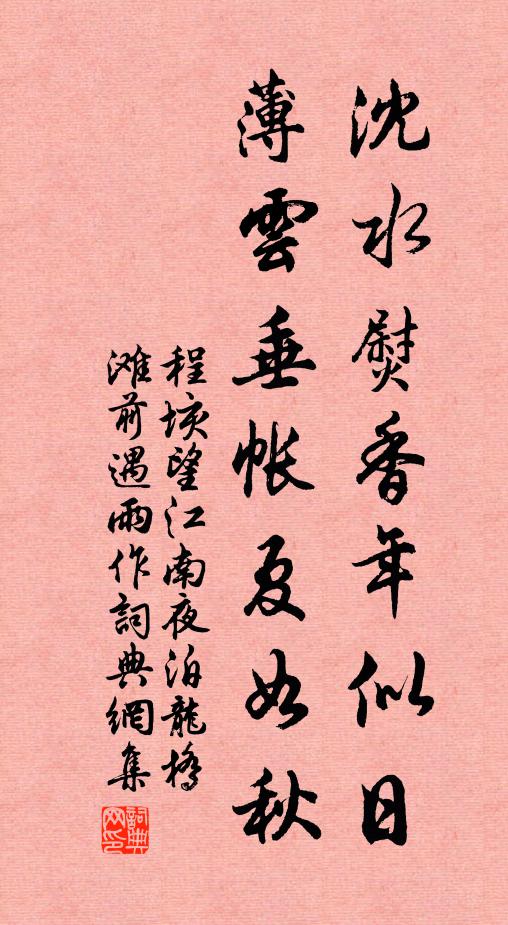 沈水熨香年似日
薄雲垂帳夏如秋
程垓望江南夜泊龍橋
滩前遇雨作詞典網集
詞典
网印